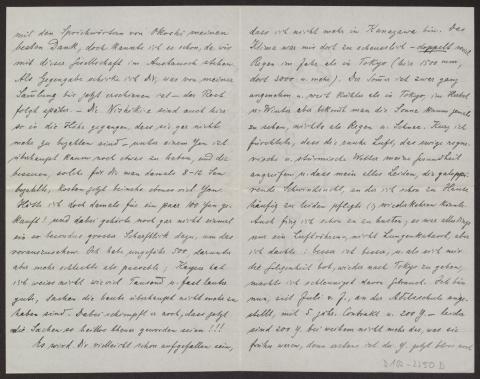 mit den Sprichwörtern von Okoshi meinen
besten Dank, doch kannte ich es schon, da wir
mit dieser Gesellschaft im Austausch stehen.
Als Gegengabe schicke ich Dir, was von meiner
Samlung bis jetzt erschienen ist – das Rest
folgt später. – Die Nishiki-e sind auch hier
so in die Höhe gegangen, dass sie gar nicht
mehr zu bezahlen sind – unter einem Yen ist
überhaupt kaum noch etwas zu haben, und die
besseren, welche für Dir man damals 8-12 Sen
bezahlte, kosten jetzt beinahe ebenso viel Yen.
Hätte ich doch damals für ein paar 100 Yen ge-
kauft! und dabei gehörte noch gar nicht einmal
ein so besonders grosser Scharfblick dazu, um das
vorauszusehen. Ich habe ungefähr 500, darunter
aber mehr schlechte als gute; Hayes hat
ich weiss nicht wie viel Tausend u. fast lauter
gute, Sachen die heute überhaupt nicht mehr zu
haben sind. Dabei schimpft er noch, dass jetzt
die Sachen so heillos theuer geworden seien!!!
Es wird Dir vielleicht schon aufgefallen sein,
dass ich nicht mehr in Kanazawa bin. Das
Klima war mir dort zu scheusslich – doppelt so viel
Regen im Jahr als in Tokyo (hier 1500 mm,
dort 3000 u. mehr). Der Sommer ist zwar ganz
angenehm u. weit kühler als in Tokyo, im Herbst
u. Winter aber bekommt man die Sonne kaum jemals
zu sehen, nichts als Regen u. Schnee. Kurz ich
fürchtete, dass die rauhe Luft, das ewige regne-
rische u. stürmische Wetter meine Gesundheit
angreifen u. dass mein altes Leiden, die galoppie-
rende Schwindsucht, an der ich schon zu Hause
häufig zu leiden pflegte, wiederkehren könnte.
Auch fing ich schon an zu husten, es war allerdings
nur ein Luftröhren-, nicht Lungenkatarrh, aber
ich dachte: besser ist besser, u. als sich mir
die Gelegenheit bot, wieder nach Tokyo zu gehen,
machte ich schleunigst davon Gebrauch. Ich bin
nun, seit Juli v. J., an der Adelsschule ange-
stellt, mit 5 jähr. Contrakt u. 200 Y. – leider
sind 200 Y. bei weitem nicht mehr das, was sie
früher waren, denn erstens ist der Y. jetzt bloss noch
D 102-2250 D